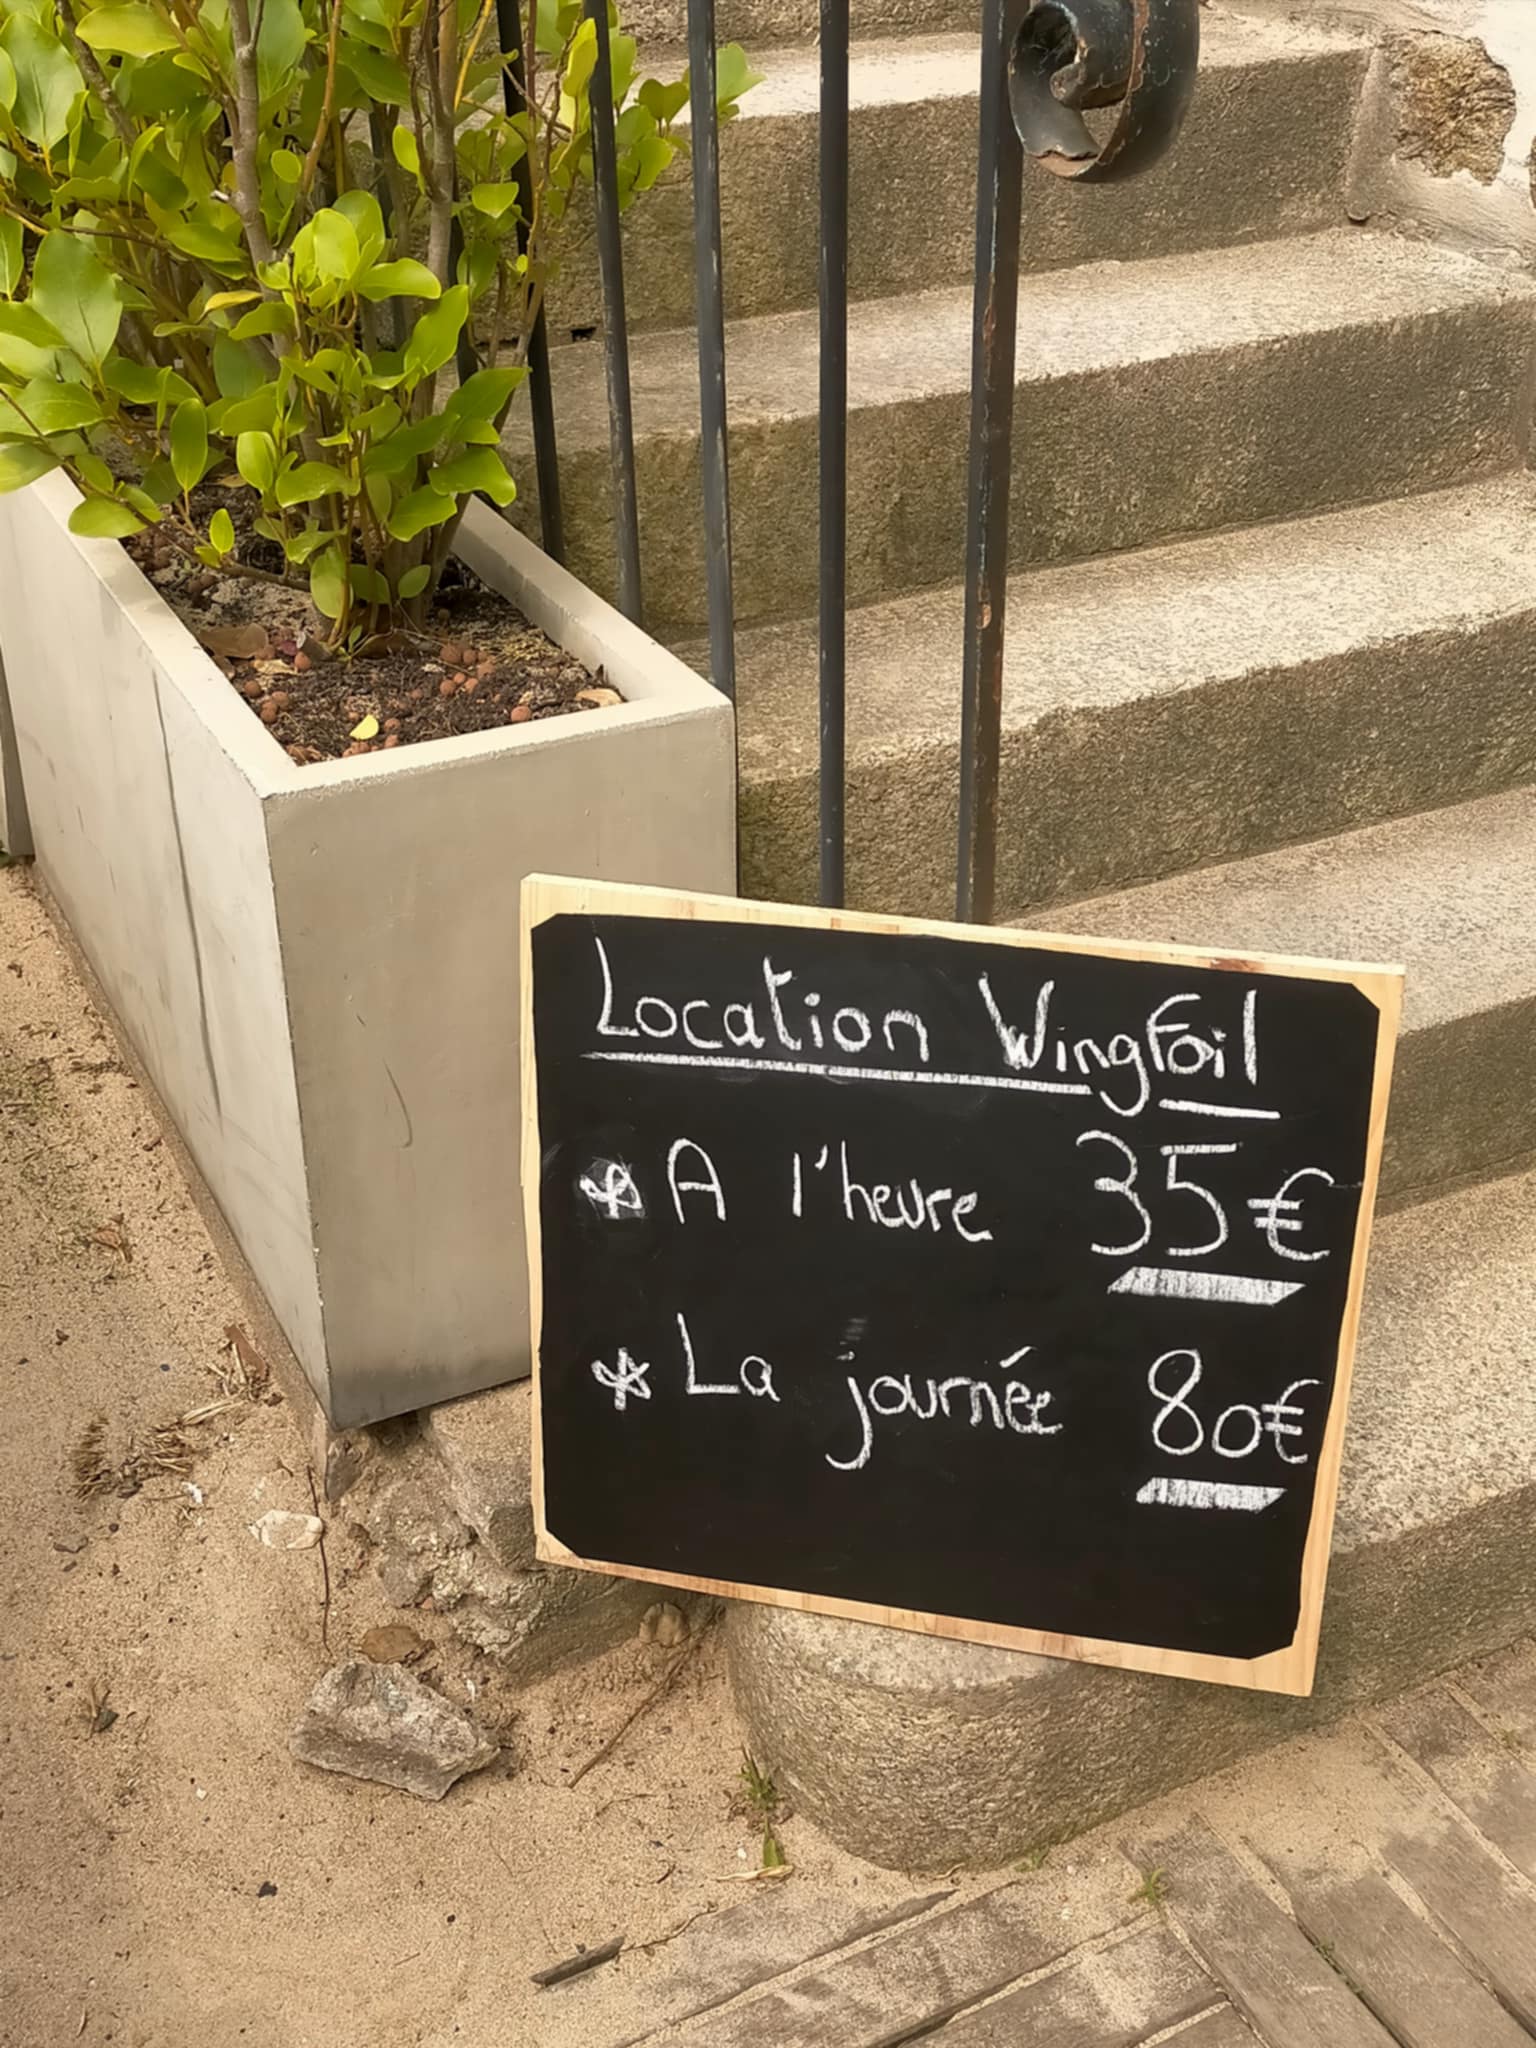 Location WingFoil
* A l'heure 35€
* La journée 80€